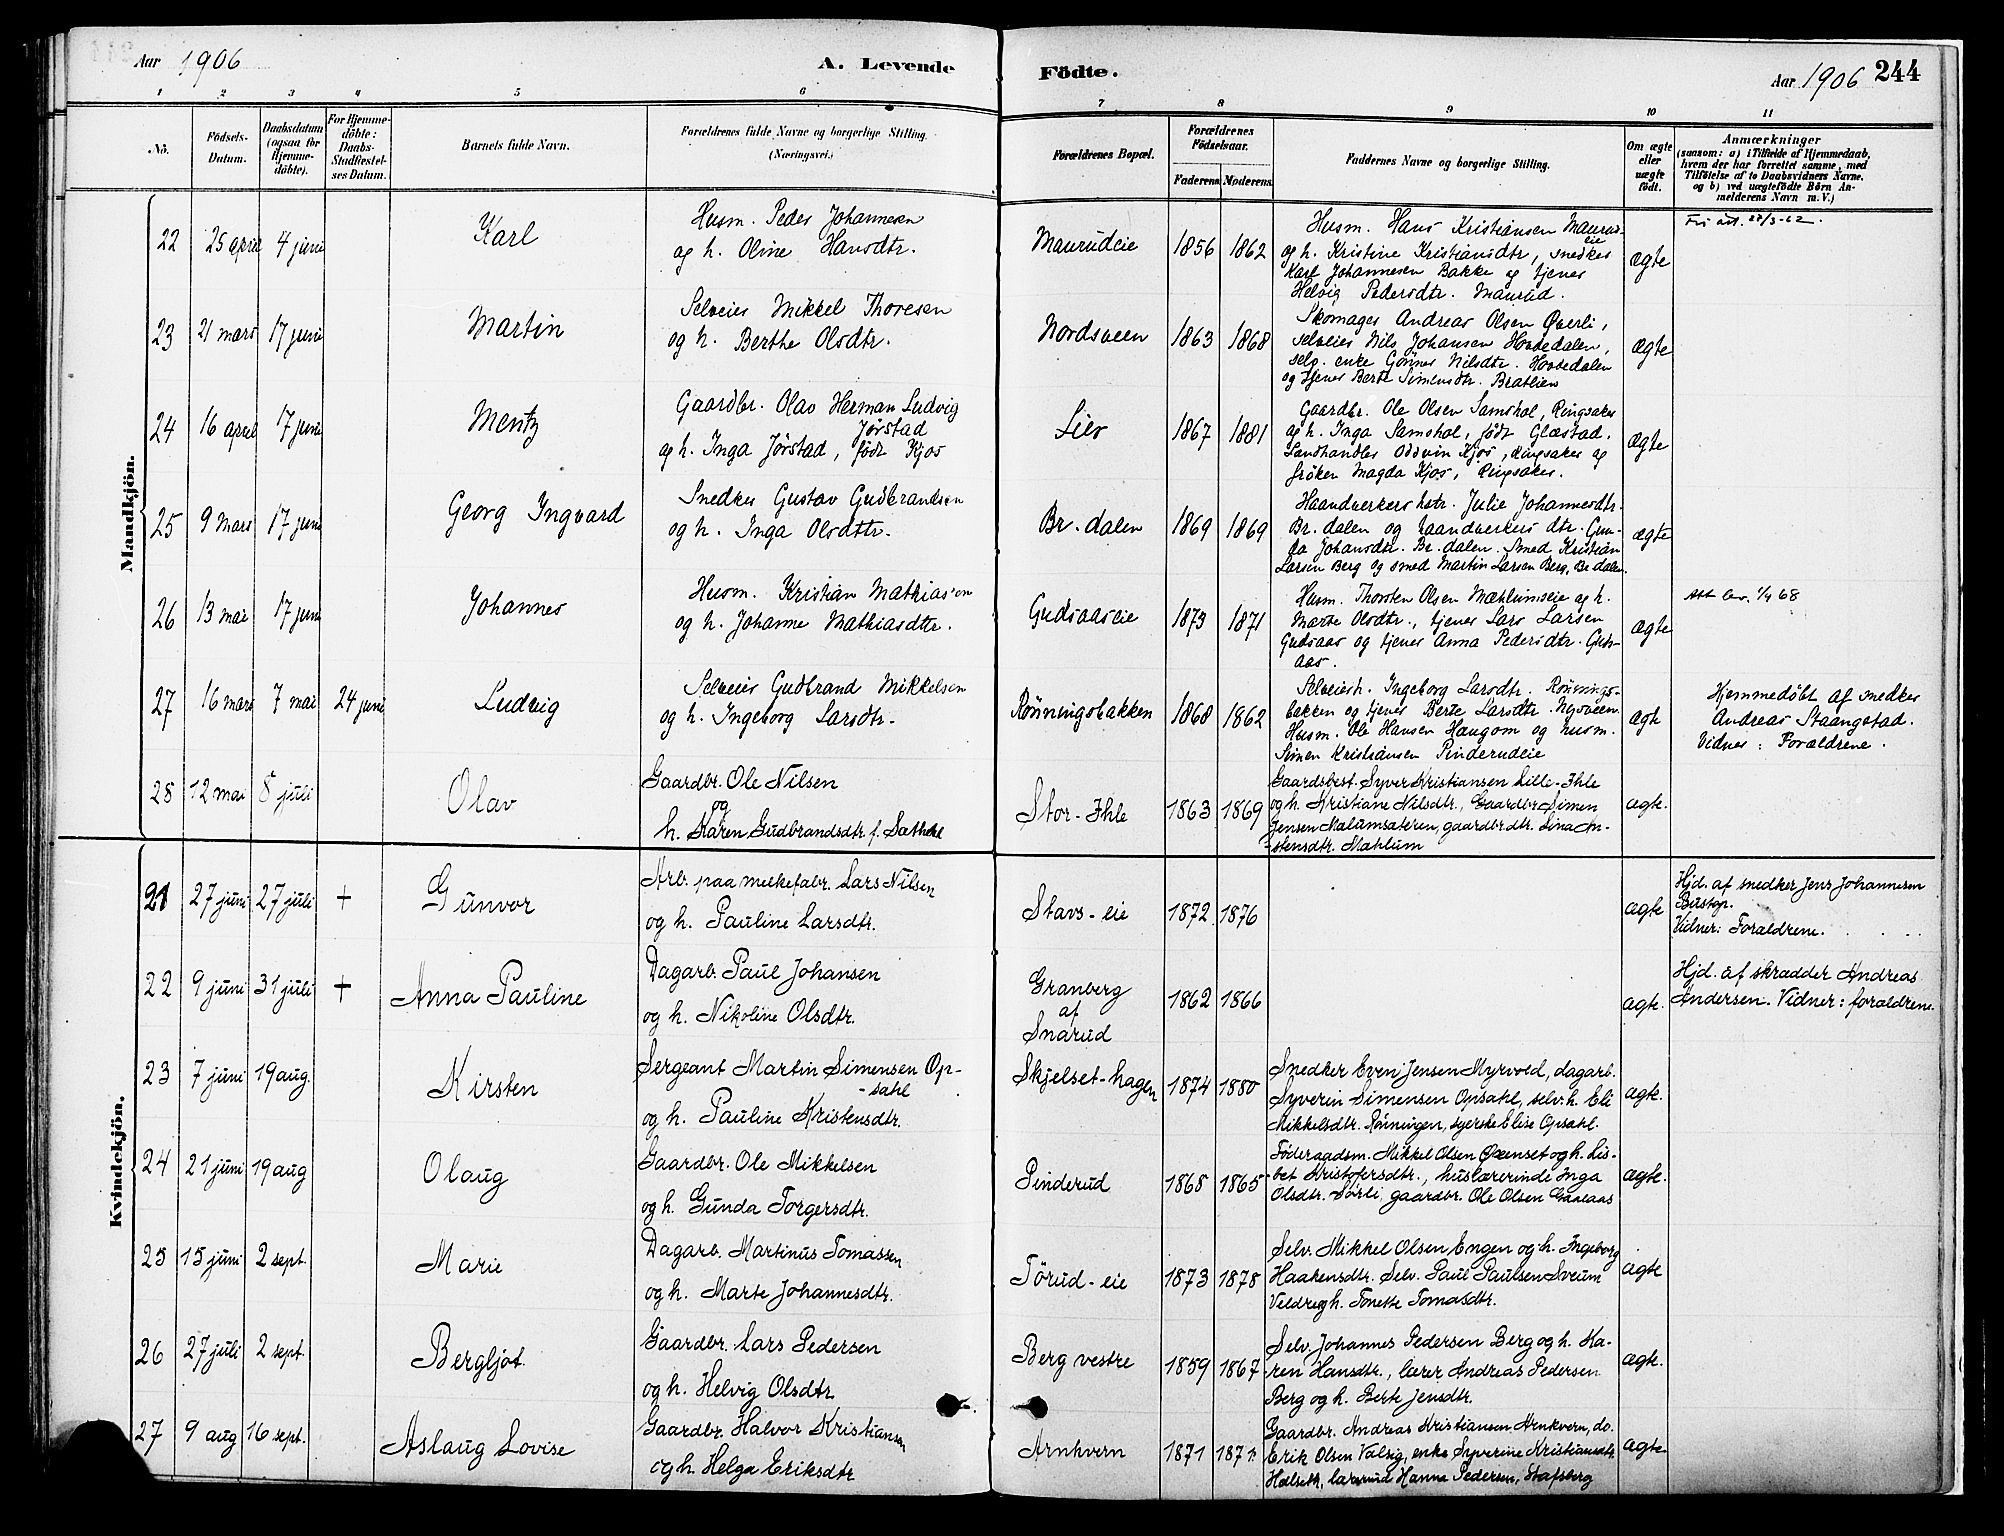 Aar 1906
A. Levende
Födte.
Aar 1906 244
1 2 3 4 5 6 7 8 9 10 11
No.
Födsels-
Datum.
Daabsdatum
(ogsaa for
Hjemme-
døbte).
For Hjemme-
döbte:
Daabs-
Stadfæstel-
ses Datum.
Barnets fulde Navn.
Forældrenes fulde Navne og borgerlige Stilling.
(Næringsvei.)
Forældrenes Bopæl.
Forældrenes
Födselsaar.
Faderens. Moderens.
Faddernes Navne og borgerlige Stilling.
Om ægte
eller
uægte
født.
Anmærkninger
(saasom: a) i Tilfælde af Hjemmedaab,
hvem der har forrettet samme, med
Tilföielse af to Daabsvidners Navne,
og b) ved uægtefödte Börn An-
melderens Navn m. V.)
Mandkjön.
22 25 april 4 juni
Karl
Husm. Peder Johannesen
og h. Oline Hansdtr.
Maurudeie
1856 1862
Husm. Hans Kristiansen Maurud-
eie
og h. Kristine Kristiansdtr, snedker
Karl Johannesen Bakke og tjener
Helvig Pedersdtr. Maurud.
ægte
23 21 mars 17 juni
Martin
Selveier Mikkel Thoresen
og h. Berthe Olsdtr.
Nordsveen
1863 1868
Skomager Andreas Olsen Øverli,
selveier Nils Johansen Hovedalen,
selv. enke Gønner Nilsdtr. Hovedalen
og tjener Berte Simensdtr. Bratlien
ægte
24 16 april 17 juni
Mentz
Gaardbr. Olav Herman Ludvig
Jørstad
og h. Inga Jørstad, født Kjos
Lier
1867 1881
Gaardbr. Ole Olsen Samshol, Ringsaker
og h. Inga Samshol, født Glæstad.
Landhandler Oddvin Kjos, Ringsaker og
frøken Magda Kjos, Ringsaker.
ægte
25 9 mars 17 juni
Georg Ingvard
Snedker Gustav Gudbrandsen
og h. Inga Olsdtr.
Br. dalen
1869 1869
Haandverkers hstr. Julie Johannesdtr.
Br. dalen og haandverkers dtr. Gun-
da Johansdtr. Br. dalen. Smed Kristian
Larsen Berg og smed Martin Larsen Berg, Br. dalen.
ægte
26 13 mai 17 juni
Johannes
Husm. Kristian Mathiasen
og h. Johanne Mathiasdtr.
Gudsaaseie
1873 1871
Husm. Thorsten Olsen Mæhlumseie og h.
Marte Olsdtr., tjener Lars Larsen
Gudsaas og tjener Anna Pedersdtr. Guds-
aas.
ægte
Att. lev. 1/4 68
27 16 mars 7 mai 24 juni
Ludvig
Selveier Gudbrand Mikkelsen
og h. Ingeborg Larsdtr.
Rønningsbakken
1868 1862
Selveiersh. Ingeborg Larsdtr. Rønnings-
bakken og tjener Berte Larsdtr. Nysveen.
Husm. Ole Hansen Haugom og husm.
Simen Kristiansen Pinderudeie
ægte
Hjemmedøbt af snedker
Andreas Staangstad.
Vidner: Forældrene.
28 12 mai 8 juli
Olav
Gaardbr. Ole Nilsen
og
h. Karen Gudbrandsdtr.
Stor-Ihle
1863 1869
Gaardsbest. Syver Kristiansen Lille-Ihle
og h. Kristiane Nilsdtr., Gaardbr. Simen
Jensen Mælumsæteren, gaardbr. dtr. Lina An-
stensdtr. Mæhlum
ægte.
Kvindekjön.
21 27 juni 27 juli +
Gunvor
Arb. paa melkefabr. Lars Nilsen
og h. Pauline Larsdtr.
Stavs-eie
1872 1876
ægte
Hjd. af snedker Jens Johannesen
Bustop.
Vidner: Forældrene.
22 9 juni 31 juli +
Anna Pauline
Dagarb. Paul Johansen
og h. Nikoline Olsdtr.
Granberg
af
Snarud
1862 1866
ægte.
Hjd. af skrædder Andreas
Andersen. Vidner: forældrene.
23 7 juni 19 aug.
Kirsten
Sergeant Martin Simensen Op-
-sahl
og h. Pauline Kristensdtr.
Skjelset-hagen
1874 1880
Snedker Even Jensen Myrvold, dagarb.
Syverin Simensen Opsahl, selv. h. Eli
Mikkelsdtr. Rønningen, syerske Elise Opsahl.
ægte.
24 21 juni 19 aug
Olaug
Gaardbr. Ole Mikkelsen
og h. Gunda Torgersdtr.
Pinderud
1868 1865
Føderaadsm. Mikkel Olsen Øvenset og h. Lis-
bet Kristofersdtr., huslærerinde Inga
Olsdtr. Sørli, gaardbr. Ole Olsen Gaalaas
ægte.
25 15 juni 2 sept.
Marie
Dagarb. Martinus Tomassen
og h. Marte Johannesdtr.
Tørud-eie
1873 1878
Selv. Mikkel Olsen Engen og h. Ingeborg
Haakensdtr. Selv. Paul Paulsen Sveum
Veldre og h. Tonette Tomasdtr.
ægte
26 27 juli 2 sept.
Bergljot
Gaardbr. Lars Pedersen
og h. Helvig Olsdtr
Berg vestre
1859 1867
Selv. Johannes Pedersen Berg og h. Ka-
ren Hansdtr., lærer Andreas Pedersen
Berg og h. Berte Jensdtr.
ægte.
27 9 aug 16 sept.
Aslaug Lovise
Gaardbr. Halvor Kristiansen
og h. Helga Eriksdtr
Arnkvern
1871 1871.
Gaardbr. Andreas Kristiansen Arnkvern, do.
Erik Olsen Valsig, enke Syverine Kristiansdtr.
Hælseth, Hanna Pedersen, Stafsberg
ægte